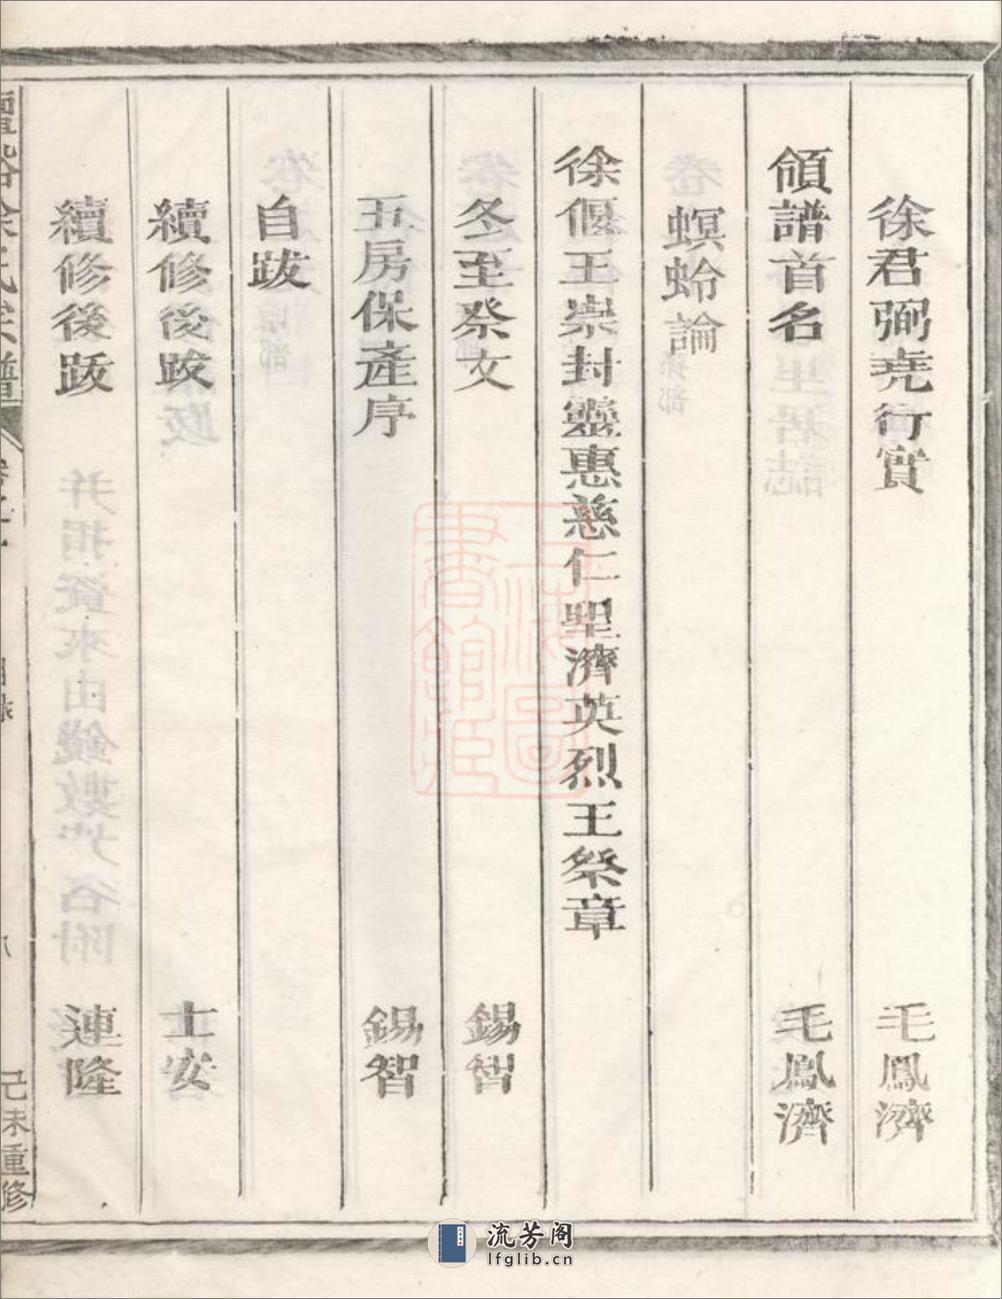 徐君弼堯行實 毛鳳濟
領譜首名 毛鳳濟
螟蛉論
徐偃王崇封靈惠慈仁聖濟英烈王祭章
冬至祭文 錫智
五房保產序 錫智
自跋
續修後跋 士安
續修後跋 連隆
徐氏宗譜 己未重修
上海圖書館藏
流芳阁
lfglib.cn